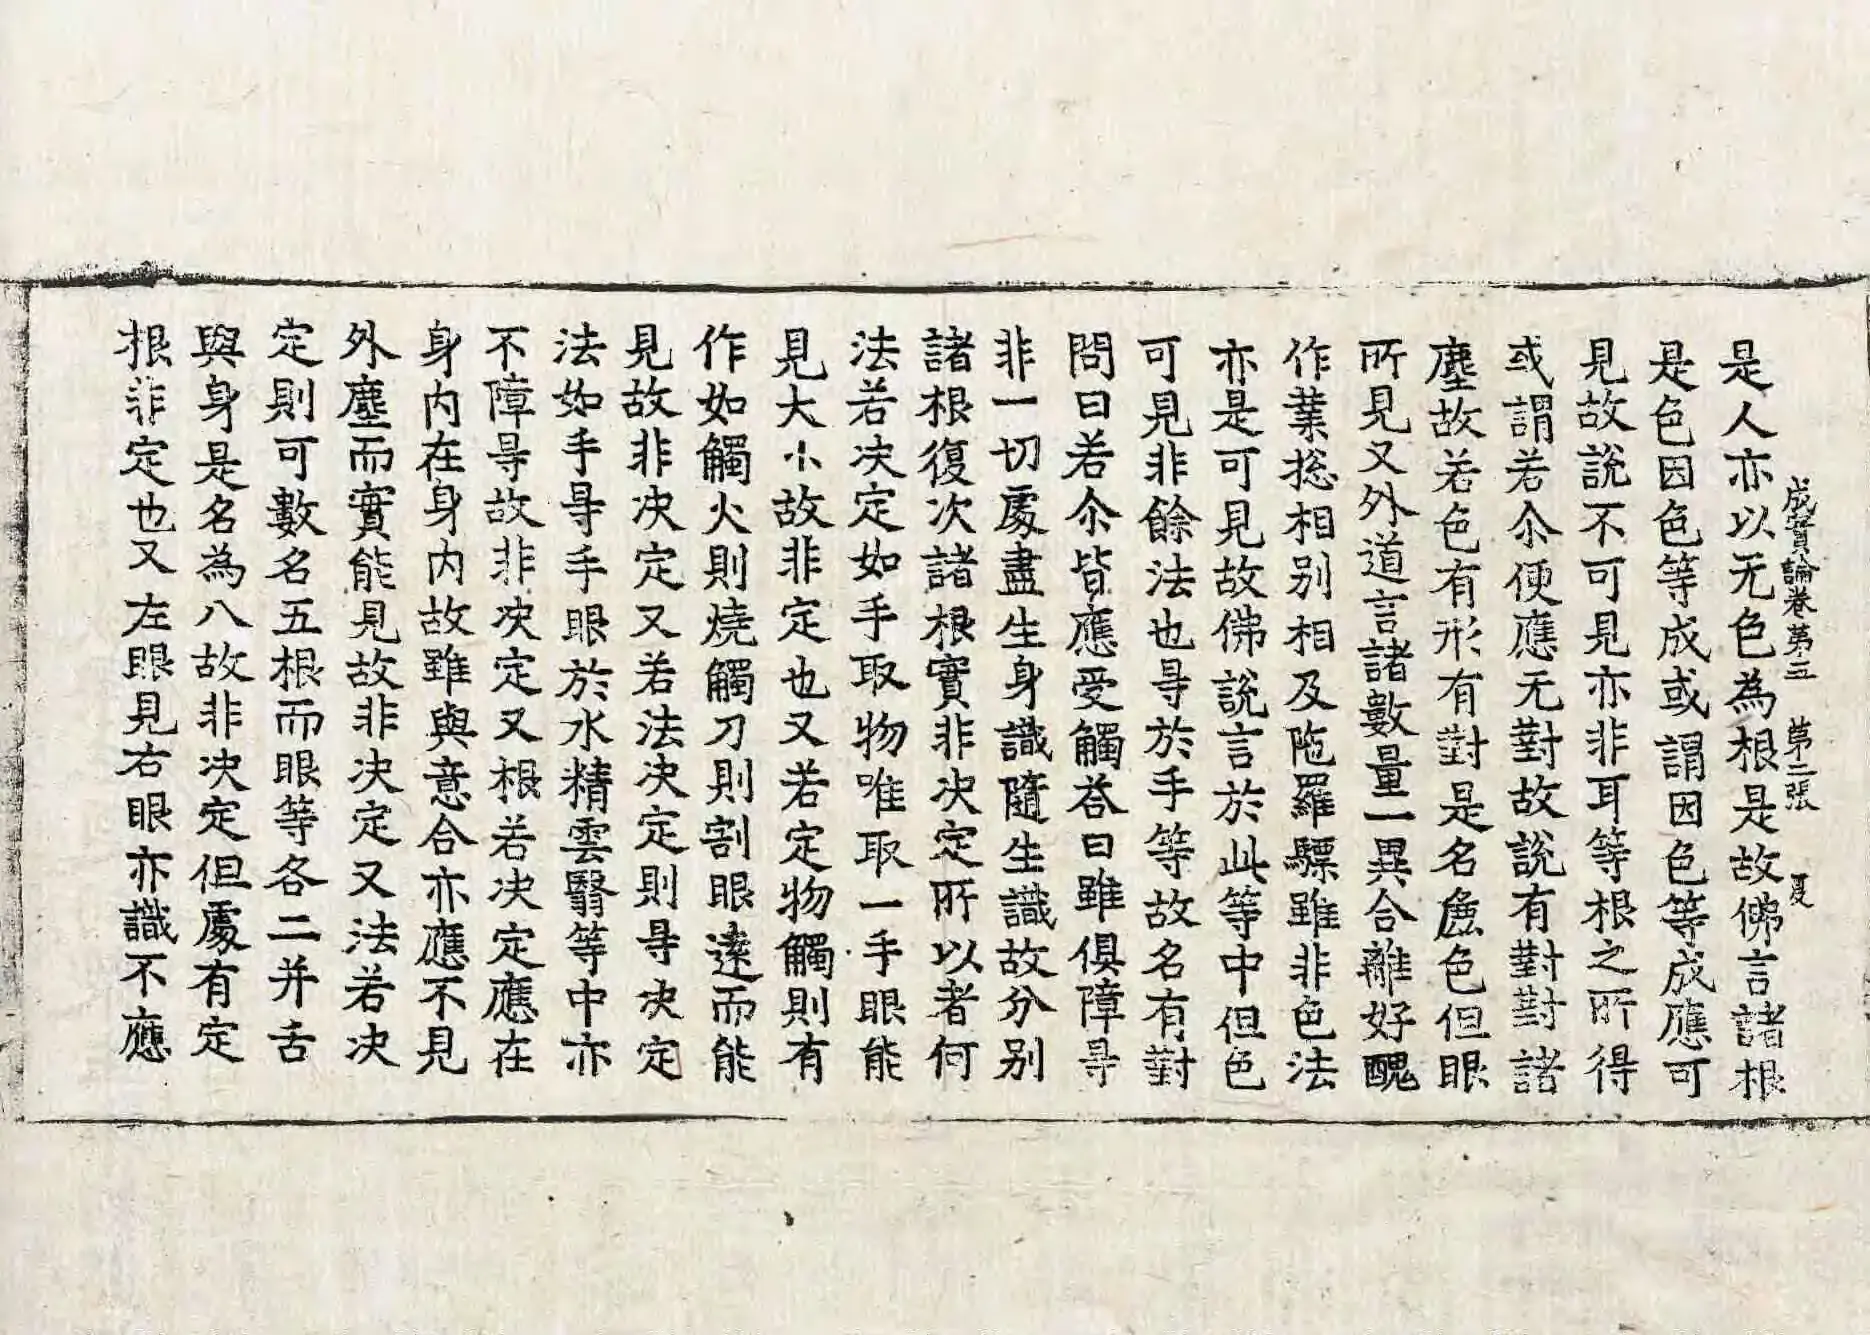 成實論卷第五 第二張 夏
是人亦以无色為根是故佛言諸根
是色因色等成或謂因色等成應可
見故說不可見亦非耳等根之所得
或謂若尒便應无對故說有對對諸
塵故若色有形有對是名麁色但眼
所見又外道言諸數量一異合離好醜
作業揔相別相及陁羅驃雖非色法
亦是可見故佛說言於此等中但色
可見非餘法也㝵於手等故名有對
問曰若尒皆應受觸荅曰雖俱障㝵
非一切處盡生身識隨生識故分別
諸根復次諸根實非決定所以者何
法若决定如手取物唯取一手眼能
見大小故非定也又若定物觸則有
作如觸火則燒觸刀則割眼遠而能
見故非决定又若法决定則㝵决定
法如手㝵手眼於水精雲翳等中亦
不障㝵故非决定又根若决定應在
身內在身內故雖與意合亦應不見
外塵而實能見故非决定又法若决
定則可數名五根而眼等各二并舌
與身是名為八故非决定但處有定
根非定也又左眼見右眼亦識不應